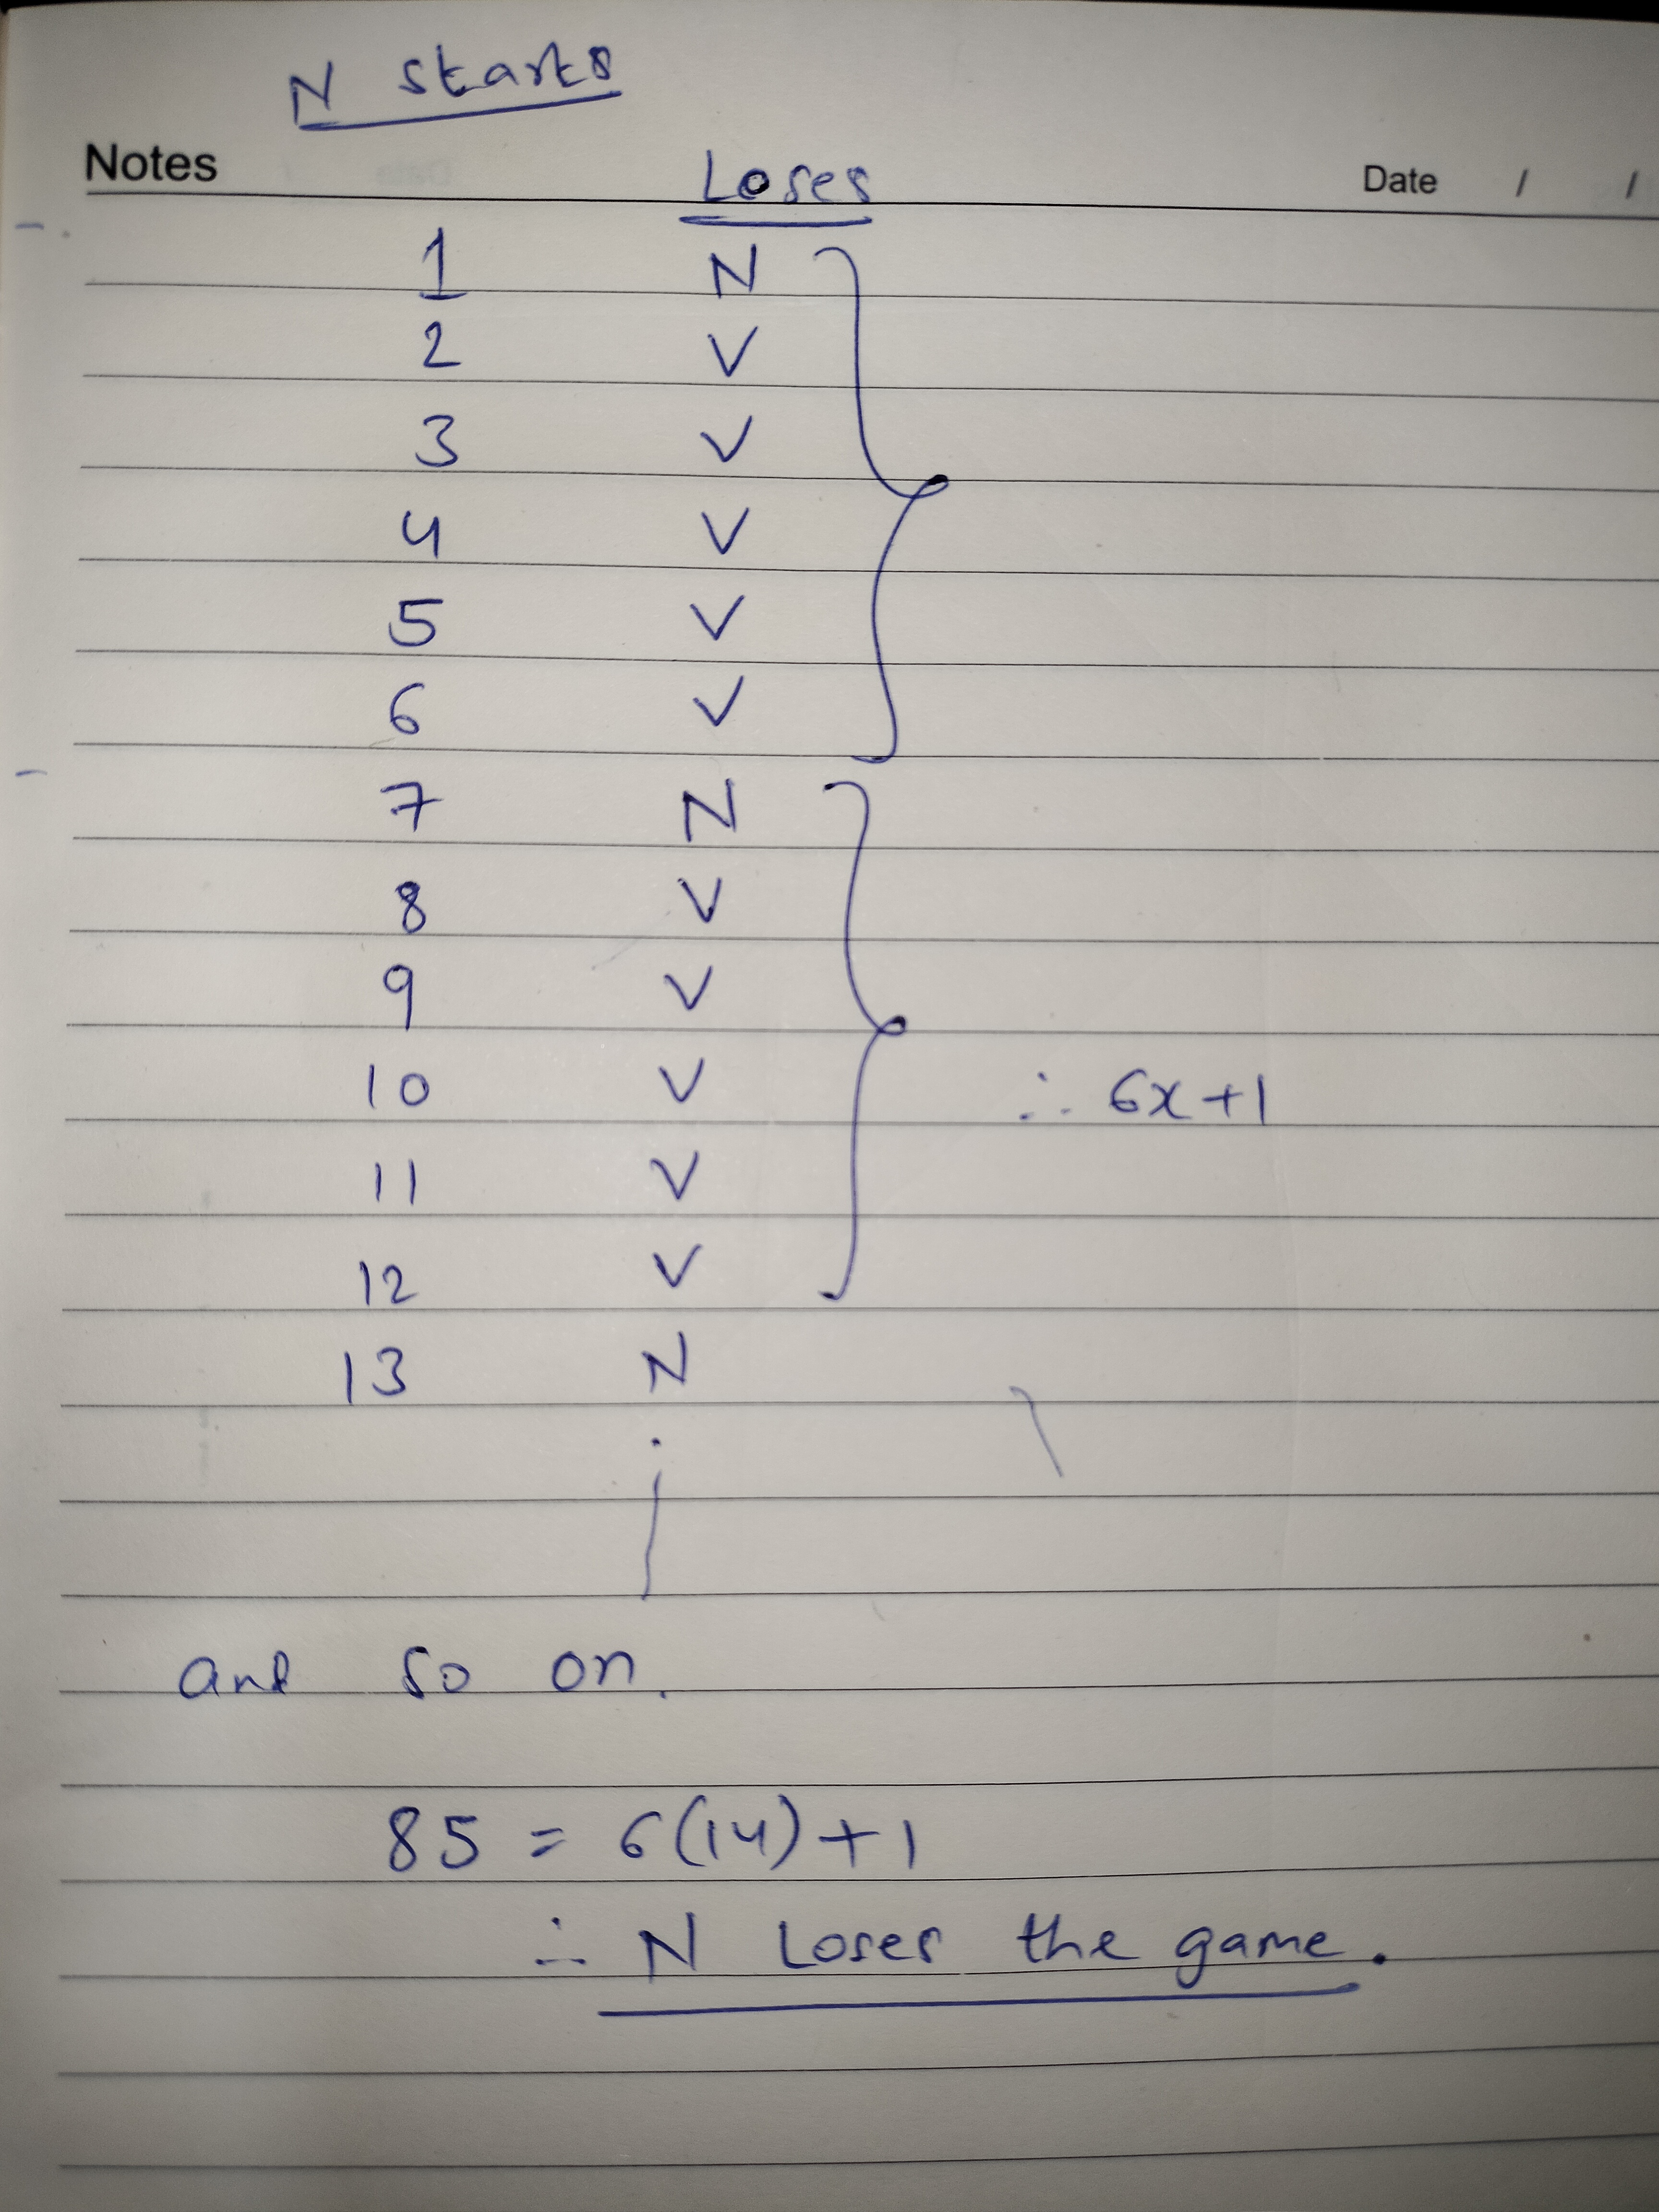 N starts
Notes Loses Date / /
1 N
2 V
3 V
4 V
5 V
6 V
7 N
8 V
9 V
10 V ∴ 6x+1
11 V
12 V
13 N
and so on.
85 = 6(14)+1
∴ N Loses the game.